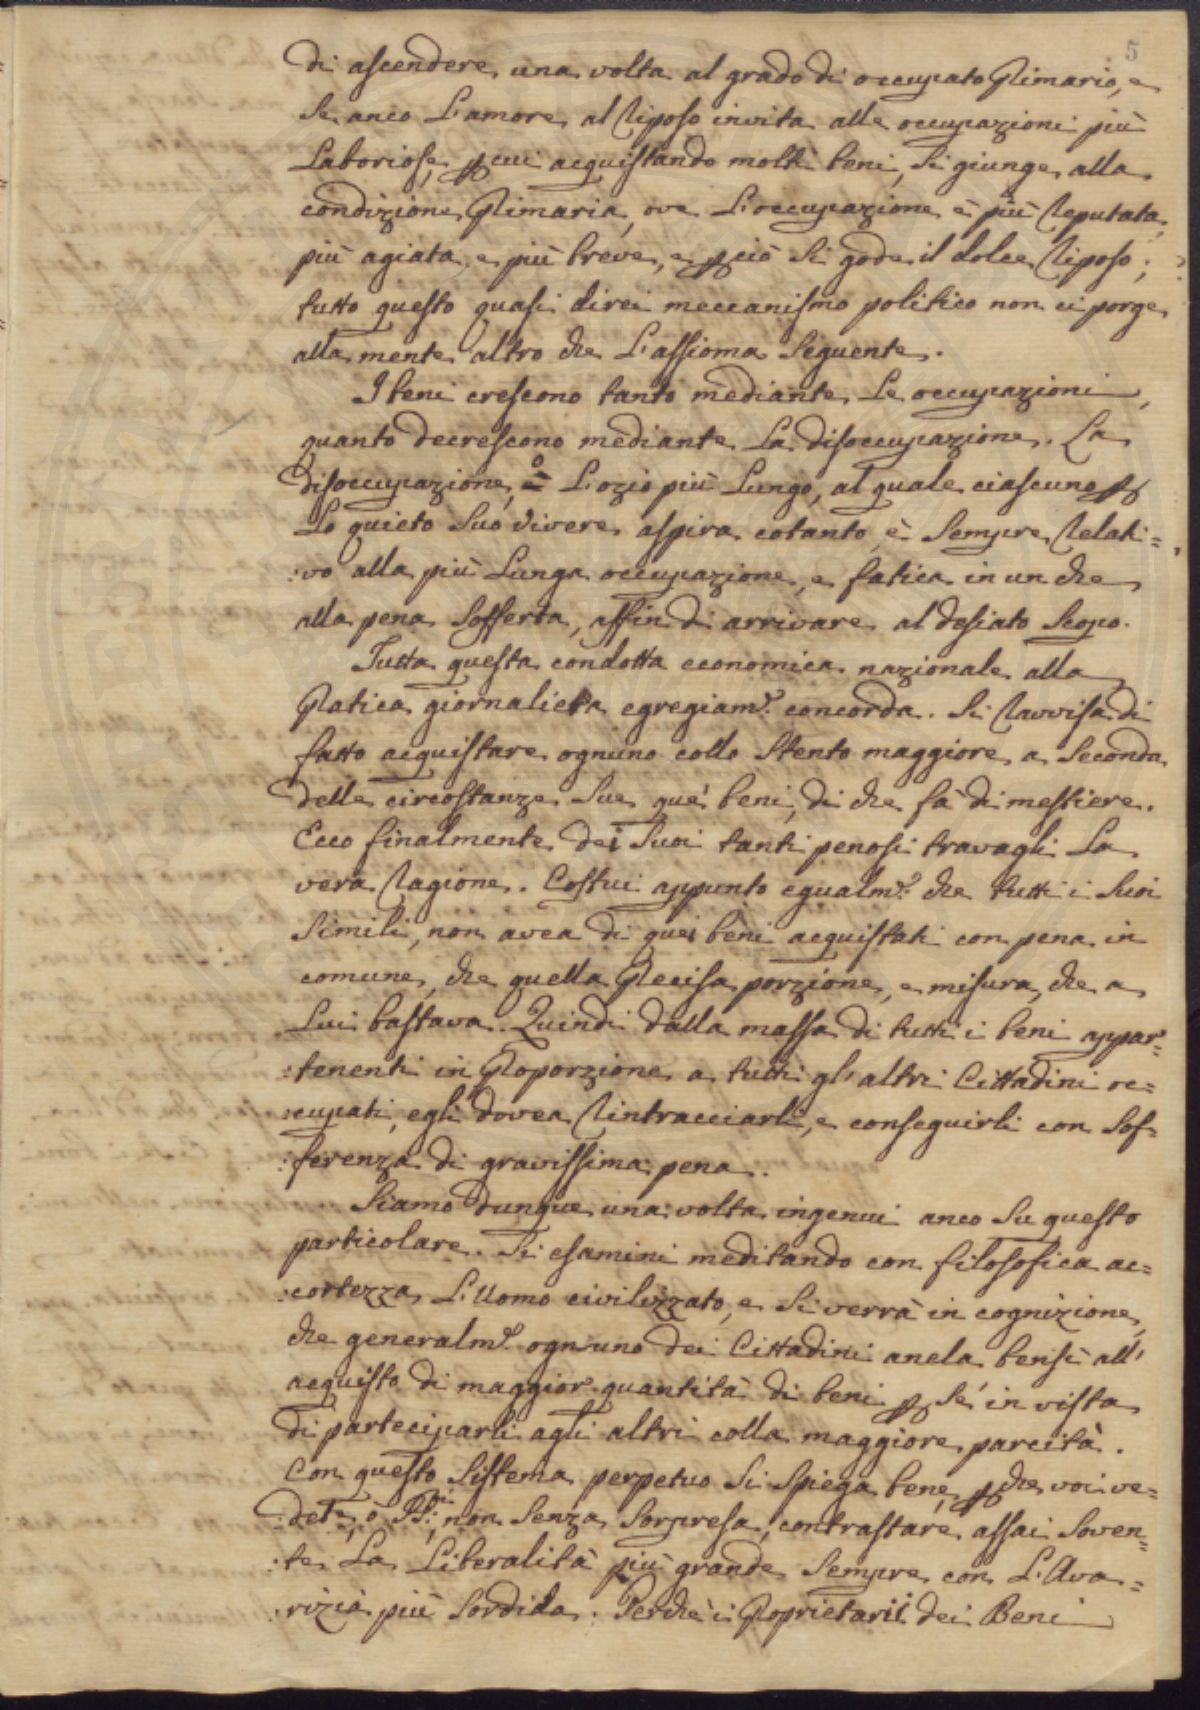 5
di ascendere una volta al grado di occupato Primario, e
se anco l'amore al riposo invita alle occupazioni più
laboriose, p cui acquistando molti beni, si giunge alla
condizione Primaria, ove l'occupazione è più reputata,
più agiata, e più breve, e p ciò si gode il dolce riposo;
tutto questo quasi direi meccanismo politico non ci porge
alla mente altro che l'assioma seguente.
I beni crescono tanto mediante le occupazioni,
quanto decrescono mediante la disoccupazione. La
disoccupazione, o l'ozio più lungo, al quale ciascuno p
lo quieto suo vivere aspira cotanto, è sempre relati=
:vo alla più lunga occupazione, e fatica in un che
alla pena sofferta, affin di arrivare al desiato scopo.
Tutta questa condotta economica nazionale alla
Pratica giornaliera egregiam.e concorda. Si ravvisa di
fatto acquistare ognuno collo stento maggiore a seconda
delle circostanze sue que' beni, di che fà di mestiere.
Ecco finalmente dei suoi tanti penosi travagli la
vera ragione. Costui appunto egualm.e che tutti i suoi
simili, non avea di quei beni acquistati con pena in
comune, che quella Precisa porzione, e misura, che a
lui bastava. Quindi dalla massa di tutti i beni appar=
:tenenti in Proporzione a tutti gl'altri Cittadini oc=
:cupati, egli dovea rintracciarli, e conseguirli con sof=
:ferenza di gravissima pena.
Siamo dunque una volta ingenui anco su questo
particolare. Si esamini meditando con filosofica ac=
:cortezza l'Uomo civilizzato, e si verrà in cognizione,
che generalm.e ognuno dei Cittadini anela bensì all'
acquisto di maggior quantità di beni p sé in vista
di parteciparli agli altri colla maggiore parcità.
Con questo sistema perpetuo si spiega bene, p che voi ve=
:dete, ò PP.ni, non senza sorpresa, contrastare assai soven=
:te la Liberalità più grande sempre con l'Ava=
:rizia più sordida. Perchè i Proprietarii dei Beni